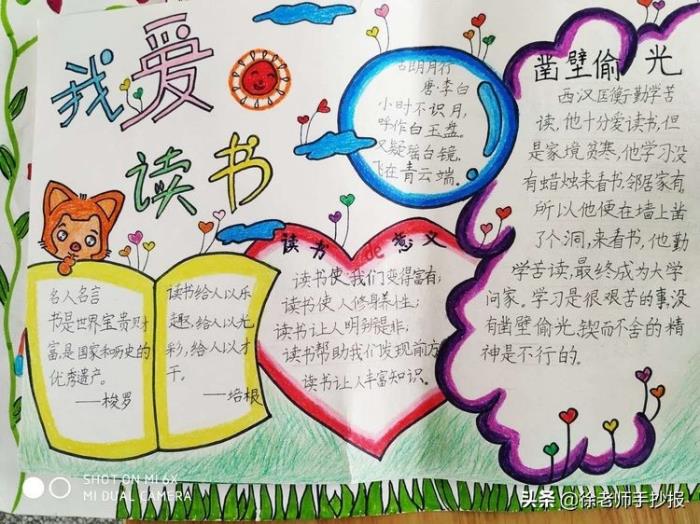 我爱
读书
古朗月行
唐·李白
小时不识月,
呼作白玉盘。
又疑瑶台镜,
飞在青云端。
凿壁偷光
西汉匡衡勤学苦
读,他十分爱读书,但
是家境贫寒,他学习没
有蜡烛来看书.邻居家有,
所以他便在墙上凿
了个洞,来看书,他勤
学苦读,最终成为大学
问家。学习是很艰苦的事,没
有凿壁偷光、锲而不舍的精
神是不行的。
名人名言
书是世界宝贵财
富,是国家和历史的
优秀遗产。
——梭罗
读书给人以乐
趣,给人以光
彩,给人以才
干。
——培根
读书de意义
读书使我们变得富有;
读书使人修身养性;
读书让人明辨是非;
读书帮助我们发现前方
读书让人丰富知识。
SHOT ON MI 6X
MI DUAL CAMERA
头条@徐老师手抄报